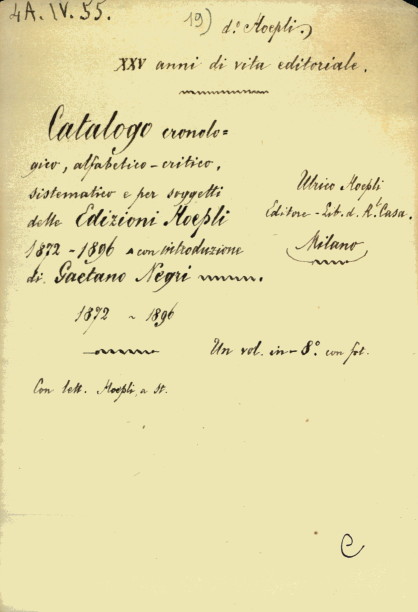 4A. IV. 55.
19) d.º Hoepli.
XXV anni di vita editoriale.
Catalogo cronolo=
gico, alfabetico-critico,
sistematico e per soggetti
delle Edizioni Hoepli
1872-1896 con introduzione
di Gaetano Negri
Ulrico Hoepli
Editore-Lib. d. R. Casa.
Milano
1872 ~ 1896
Un vol. in-8º. con fot.
Con lett. Hoepli, a st.
C